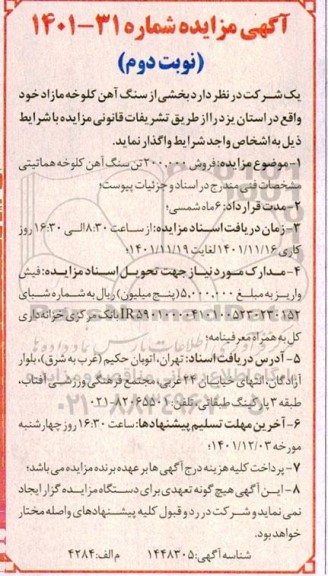 آگهی مزایده شماره ۳۱-۱۴۰۱
(نوبت دوم)
یک شرکت در نظر دارد بخشی از سنگ آهن کلوخه مازاد خود
واقع در استان یزد را از طریق تشریفات قانونی مزایده با شرایط
ذیل به اشخاص واجد شرایط واگذار نماید.
۱-موضوع مزایده: فروش ۲۰۰,۰۰۰ تن سنگ آهن کلوخه هماتیتی
مشخصات فنی مندرج در اسناد و جزئیات پیوست؛
۲-مدت قرارداد: ۶ ماه شمسی؛
۳-زمان دریافت اسناد مزایده: از ساعت ۸:۳۰ الی ۱۶:۳۰ روز
کاری ۱۴۰۱/۱۱/۱۶ لغایت ۱۴۰۱/۱۱/۱۹؛
۴-مدارک مورد نیاز جهت تحویل اسناد مزایده: فیش
واریز به مبلغ ۵,۰۰۰,۰۰۰ (پنج میلیون) ریال به شماره شبای
بانک مرکزی خزانه داری
کل به همراه معرفینامه؛
۵-آدرس دریافت اسناد: تهران، اتوبان حکیم (غرب به شرق)، بلوار
آزادگان، انتهای خیابان ۲۴ غربی، مجتمع فرهنگی ورزشی آفتاب،
طبقه ۳ پارکینگ طبقاتی، تلفن: ۸۲۰۶۵۵۰۱-۰۲۱
۶-آخرین مهلت تسلیم پیشنهادها: ساعت ۱۶:۳۰ روز چهارشنبه
مورخه ۱۴۰۱/۱۲/۰۳؛
۷-پرداخت کلیه هزینه درج آگهی ها بر عهده برنده مزایده می باشد؛
۸-این آگهی هیچ گونه تعهدی برای دستگاه مزایده گزار ایجاد
نمی نماید و شرکت در رد و قبول کلیه پیشنهادهای واصله مختار
خواهد بود.
شناسه آگهی: ۱۴۴۸۳۰۵ م الف: ۴۲۸۴